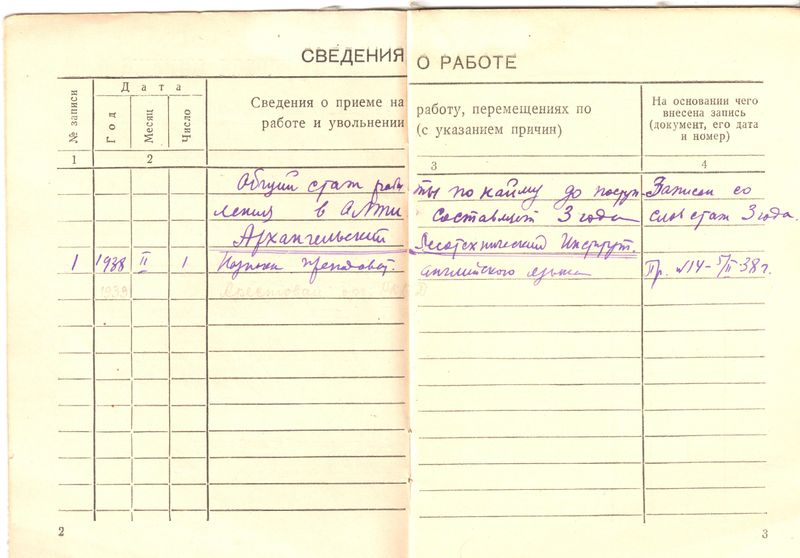 СВЕДЕНИЯ О РАБОТЕ
№ записи
Дата
Год
Месяц
Число
Сведения о приеме на работу, перемещениях по
работе и увольнении (с указанием причин)
На основании чего
внесена запись
(документ, его дата
и номер)
1 2 3 4
Общий стаж работы по найму до поступ- Записан со
ления в АЛТИ составляет 3 года слов стаж 3 года.
Архангельский Лесотехнический Институт.
1 1938 II 1 преподават. английского языка Пр. №14-5/II-38г.
1939
2
3